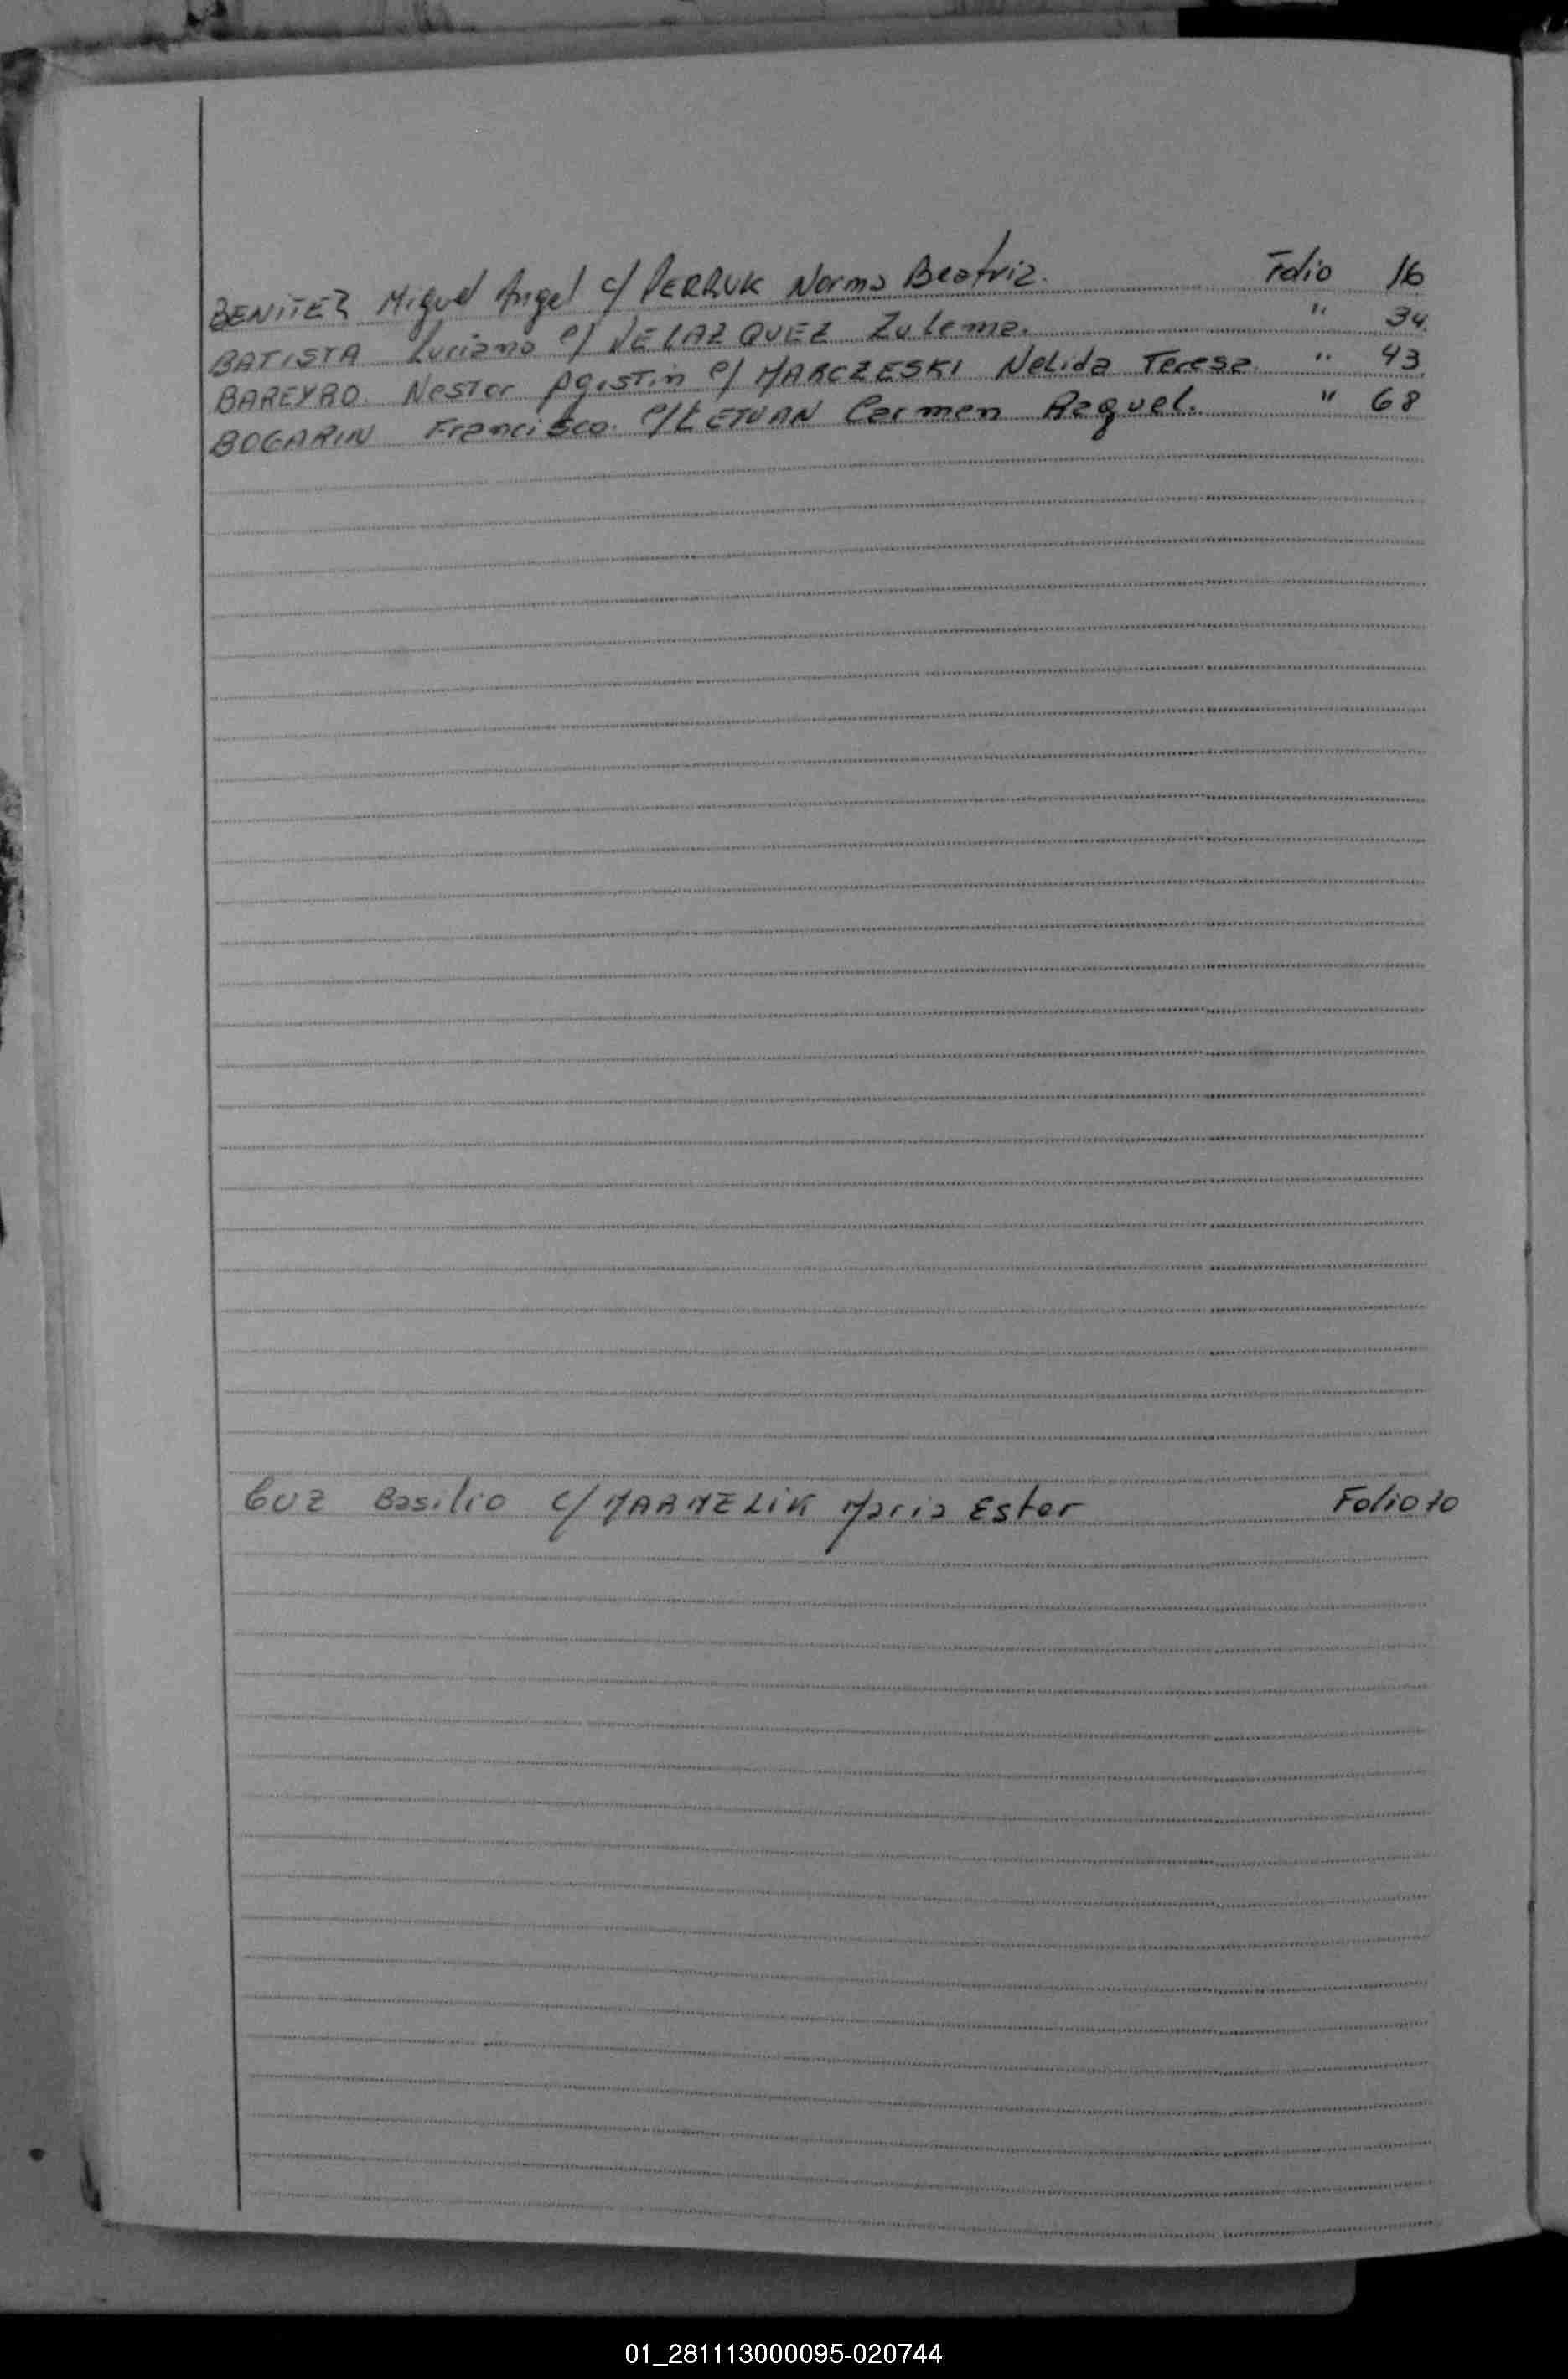 BENITEZ Miguel Angel c/ PERRUK Norma Beatriz. Folio 16
BATISTA Luciano c/ VELAZQUEZ Zulema. " 34
BAREYRO. Nestor Agustin c/ MARCZESKI Nelida Teresa " 43
BOGARIN Francisco. c/ LETVAN Carmen Raquel. " 68
Basilio c/ MARMELIK Maria Ester Folio 10
01_281113000095-020744